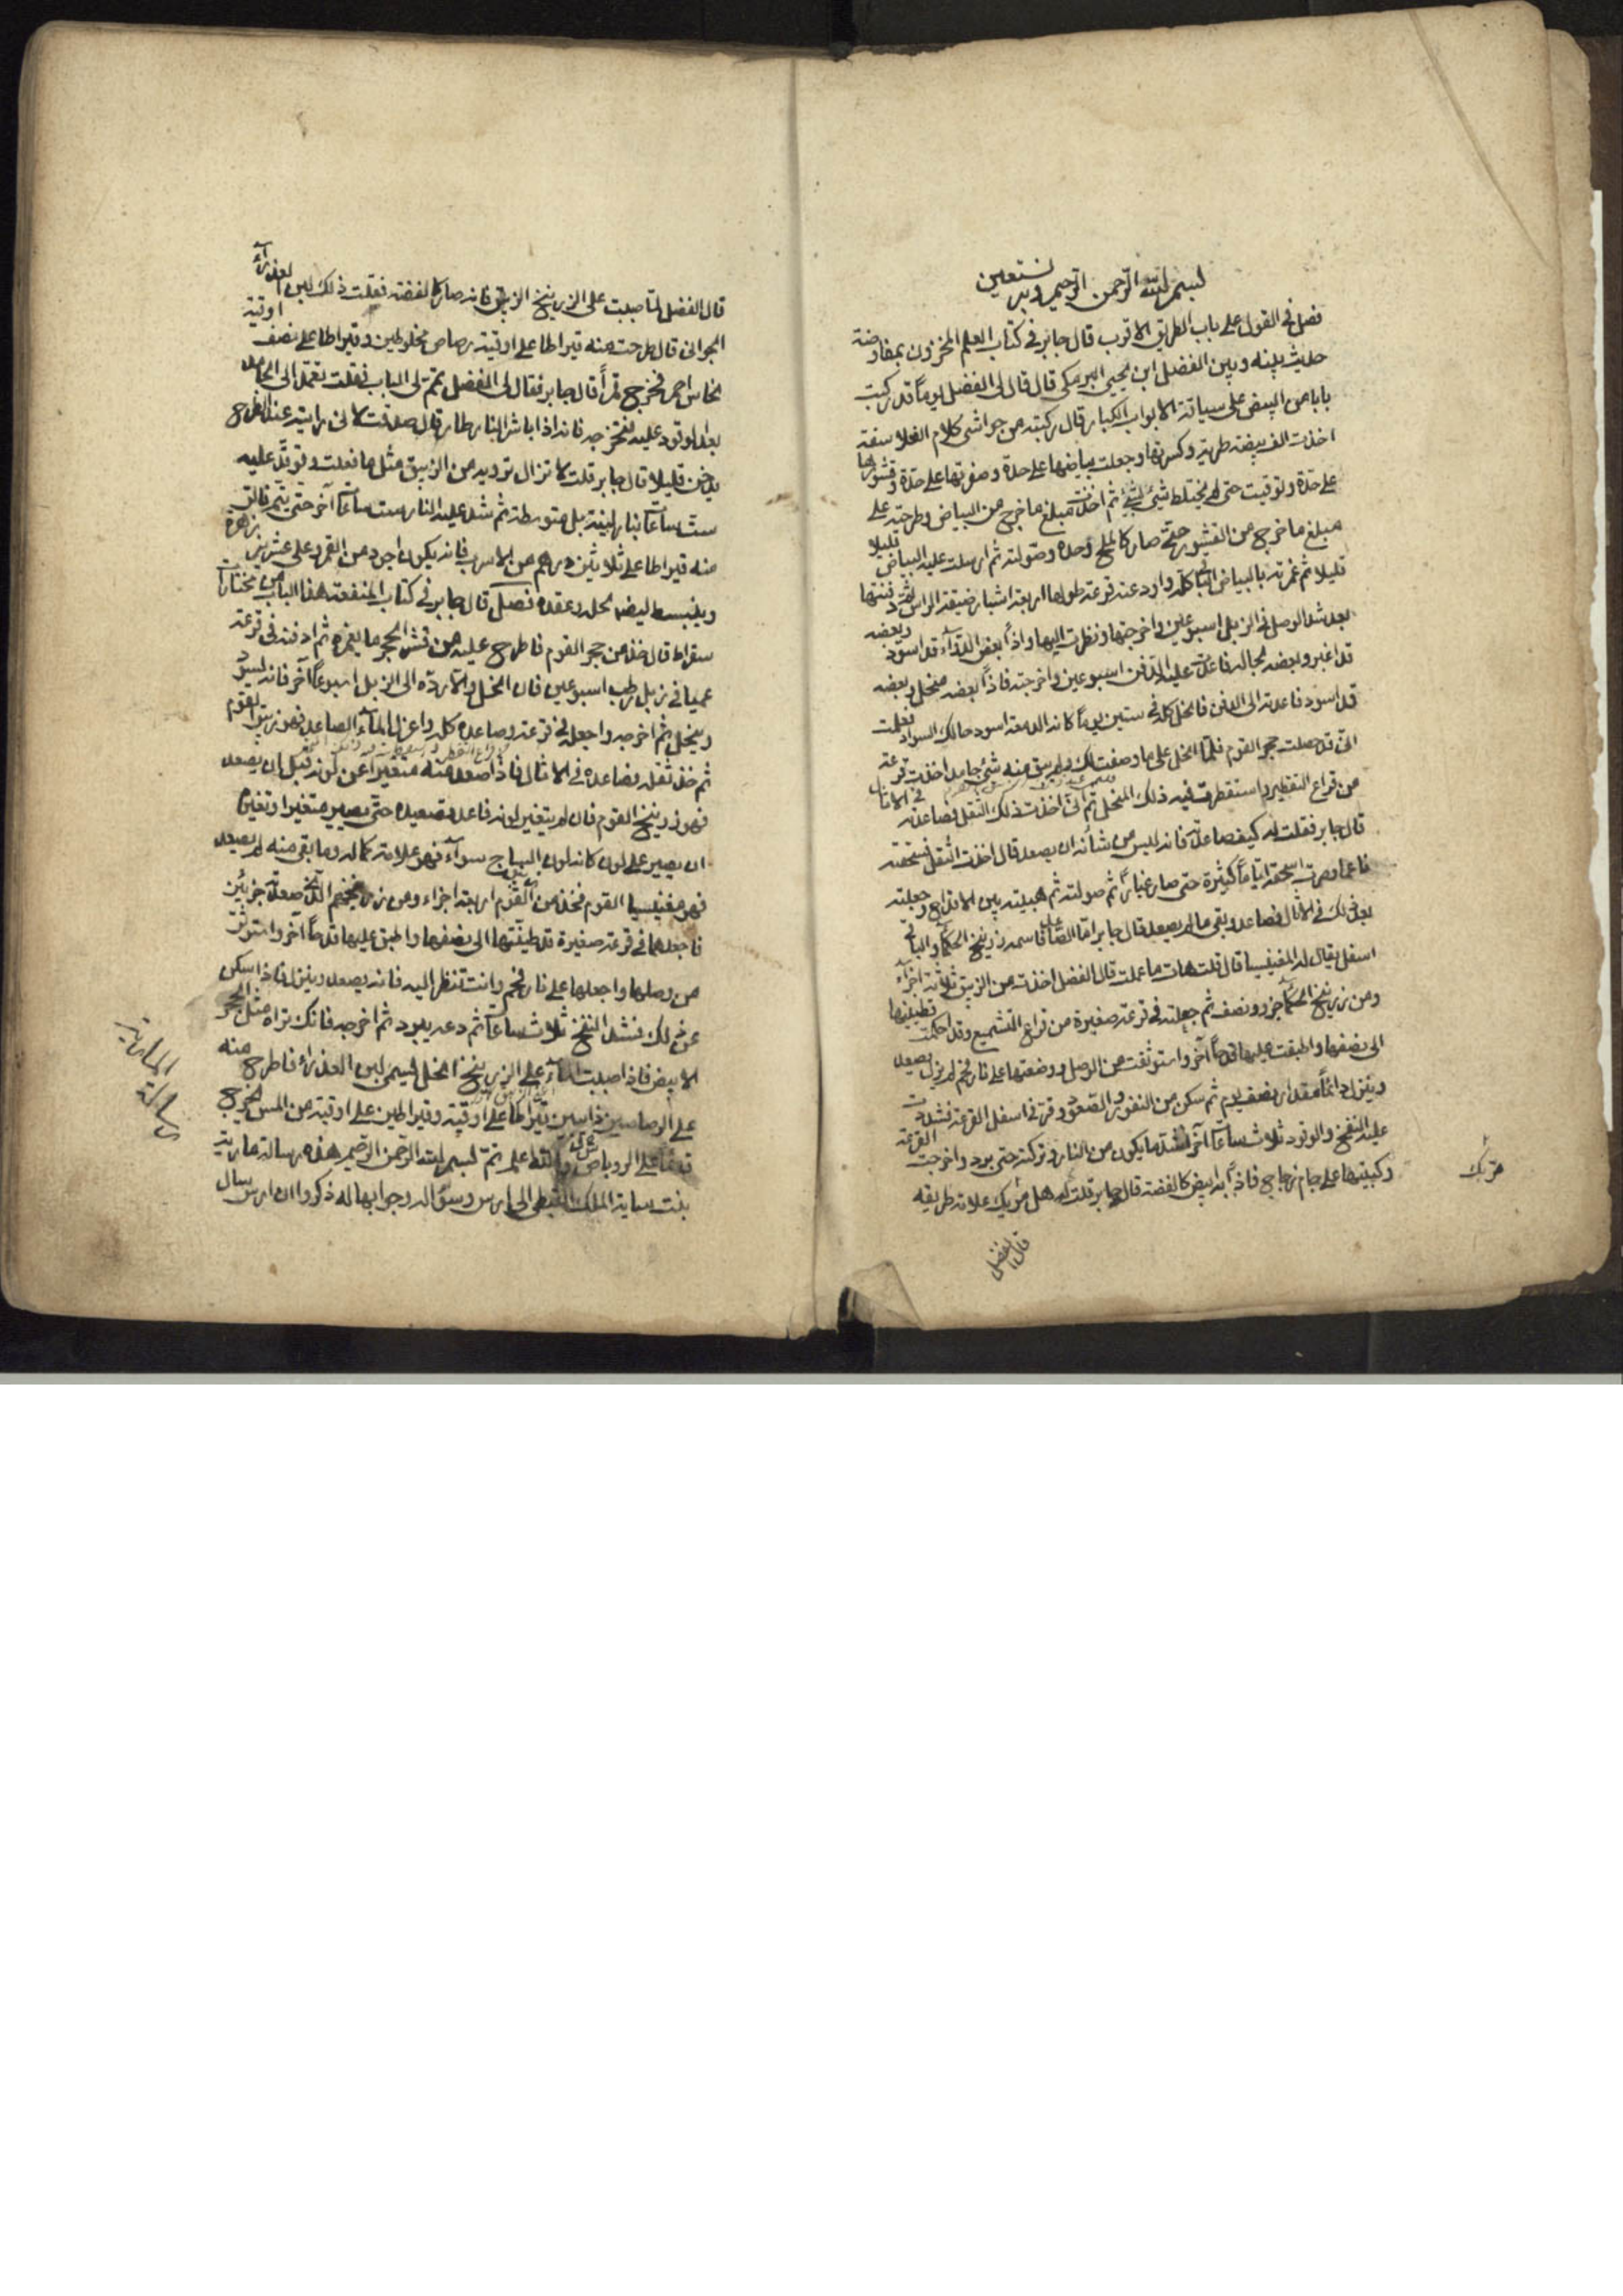 بسم الله الرحمن الرحيم وبه نستعين
فصل في القول على باب الطريق الاقرب قال جابر في كتاب العلم المخزون بمفاوضة
حديث بينه وبين الفضل ابن يحيى البرمكي قال قال لي الفضل يوماً قد ركبت
بابا من البيض على سياقة الابواب الكبار قال ركبته من حواشي كلام الفلاسفة
اخذت الف بيضة طرية وكسرتها وجعلت بياضها على حدة وصفرتها على حدة وقشورها
على حدة وتوقيت حتى لم يختلط شئ بشئ ثم اخذت مبلغ ما خرج من البياض وطرحته على
مبلغ ما خرج من القشور حتى صار كالملح وحده وصولته ثم ارسلت عليه البياض قليلا
قليلا ثم غمرته بالبياض الباقي كله واودعته قرعة طولها اربعة اشبار ضيقة الراس ثم دفنتها
بعد شد الوصل في الزبل اسبوعين واخرجتها ونظرت اليها واذاً بعض الدوآء قد اسود وبعضه
قد اغبر وبعضه بحاله فاعدت عليه الدفن اسبوعين واخرجته فاذاً بعضه منحل وبعضه
قد اسود فاعدته الى الدفن فانحل كله في ستين يوماً كانه الدمعة اسود حالك السواد فعلمت
اني قد حصلت حجر القوم فلما انحل على ما وصفت لك ولم يبق منه شئ جامد اخذت قرعة
من قراع التقطير واستقطرت فيه ذلك المنحل ثم اني اخذت ذلك الثفل فصاعدته في الاثال
قال جابر فقلت له كيف صاعدته فانه ليس من شأنه ان يصعد قال اخذت الثفل فسحقته
ناعما وصرت اسحقه اياماً كثيرة حتى صار غباراً ثم صولته ثم هبيته بين الاقداح وجعلته
بعد ذلك في الاثال فصاعد وبقي ما لم يصعد قال جابر اما الصاعد فاسمه زرنيخ الحكمآء والباقي
اسفل يقال له المغنيسيا قال قلت هات ما عملت قال الفضل اخذت من الزيبق ثلاثة اجزآء
ومن زرنيخ الحكمآء جزو ونصف ثم جعلته في قرعة صغيرة من قراع التشميع وقد احكمت تطيينها
الى نصفها واطبقت عليها قدحاً آخر واستوثقت من الوصل ووضعتها على نار فحم لم يزل يصعد
وينزل دائماً مقدار نصف يوم ثم سكن من النفور والصعود وقر في اسفل القرعة فشددت
عليه النفخ والوقود ثلاث ساعات آخر اشد ما يكون من النار وتركته حتى برد واخرجت القرعة
وكببتها على جام زجاج فاذاً به ابيض كالفضة قال جابر قلت له هل مر بك علامة طريفة
مر بك
قال الفضل
قال الفضل لما صببت على الزرنيخ الزيبق فانه صار كالفضة فقلت ذلك لبن العذرآء
الجواني قال طرحت منه قيراطا على اوقية رصاص مخلوطين وقيراطا على نصف اوقية
نحاس احمر فخرج قمراً قال جابر فقال لي المفضل يتم لي الباب فقلت تعمد الى الحاصل
بعد الوقود عليه فتخرجه فانه اذا باشر النار طار قال صدقت لاني رايته عند الطرح
يدخن قليلا قال جابر قلت لا تزال تزويده من الزيبق مثل ما فعلت وتوقد عليه
ست ساعات بنار لينة بل متوسطة ثم شد عليه النار ست ساعات آخر حتى يتم فالق
منه قيراطا على ثلاثين درهم من الاسرب فانه يكون اجود من القمر وعلى عشرين زهرة
وينبسط ايضا بحله وعقده فصل قال جابر في كتاب المنفعة هذا الباب من مختارات
سقراط قال خذ من حجر القوم فاطرح عليه من قشر الحجر ما يغمره ثم ادفنه في قرعة
عميا في زبل رطب اسبوعين فان انحل والا رده الى الزبل اسبوعاً آخر فانه يسود
وينحل ثم اخرجه واجعله في قرعة وصاعده كله واعزل المآء الصاعد فهو زيبق القوم
ثم خذ ثفله فصاعده في الاثال فاذا صعد منه متغيراً عن كونه قبل ان يصعد
فهو زرنيخ القوم فان لم يتغير لونه فاعد تصعيده حتى يصير متغيرا وتغيره
ان يصير على لون كانه لون البهاج سوآء فهو علامة كماله وما بقي منه لم يصعد
فهو مغنيسيا القوم فخذ من القوم اربعة اجزاء ومن زرنيخهم الذي صعدته جزئين
فاجعلهما في قرعة صغيرة قد طينتها الى نصفها واطبق عليها قدحاً آخر واستوثق
من وصلها واجعلها على نار فحم وانت تنظر اليه فانه يصعد وينزل فاذا سكن
عن ذلك فشد النفخ ثلاث ساعات ثم دعه يبرد ثم اخرجه فانك تراه مثل الحجر
الابيض فاذا صببت المآء على الزرنيخ انحل ليسمى لبن العذرآء فاطرح منه
على الرصاصين ذائبين قيراطا على اوقية وقيراطين على اوقية من المس يخرج
قمرا على الروباص والله اعلم تم بسم الله الرحمن الرحيم هذه رسالة مارية
بنت سابة الملك القبطي الى ارس وسؤاله وجوابها له ذكروا ان ارس سال
رسالة
المارية